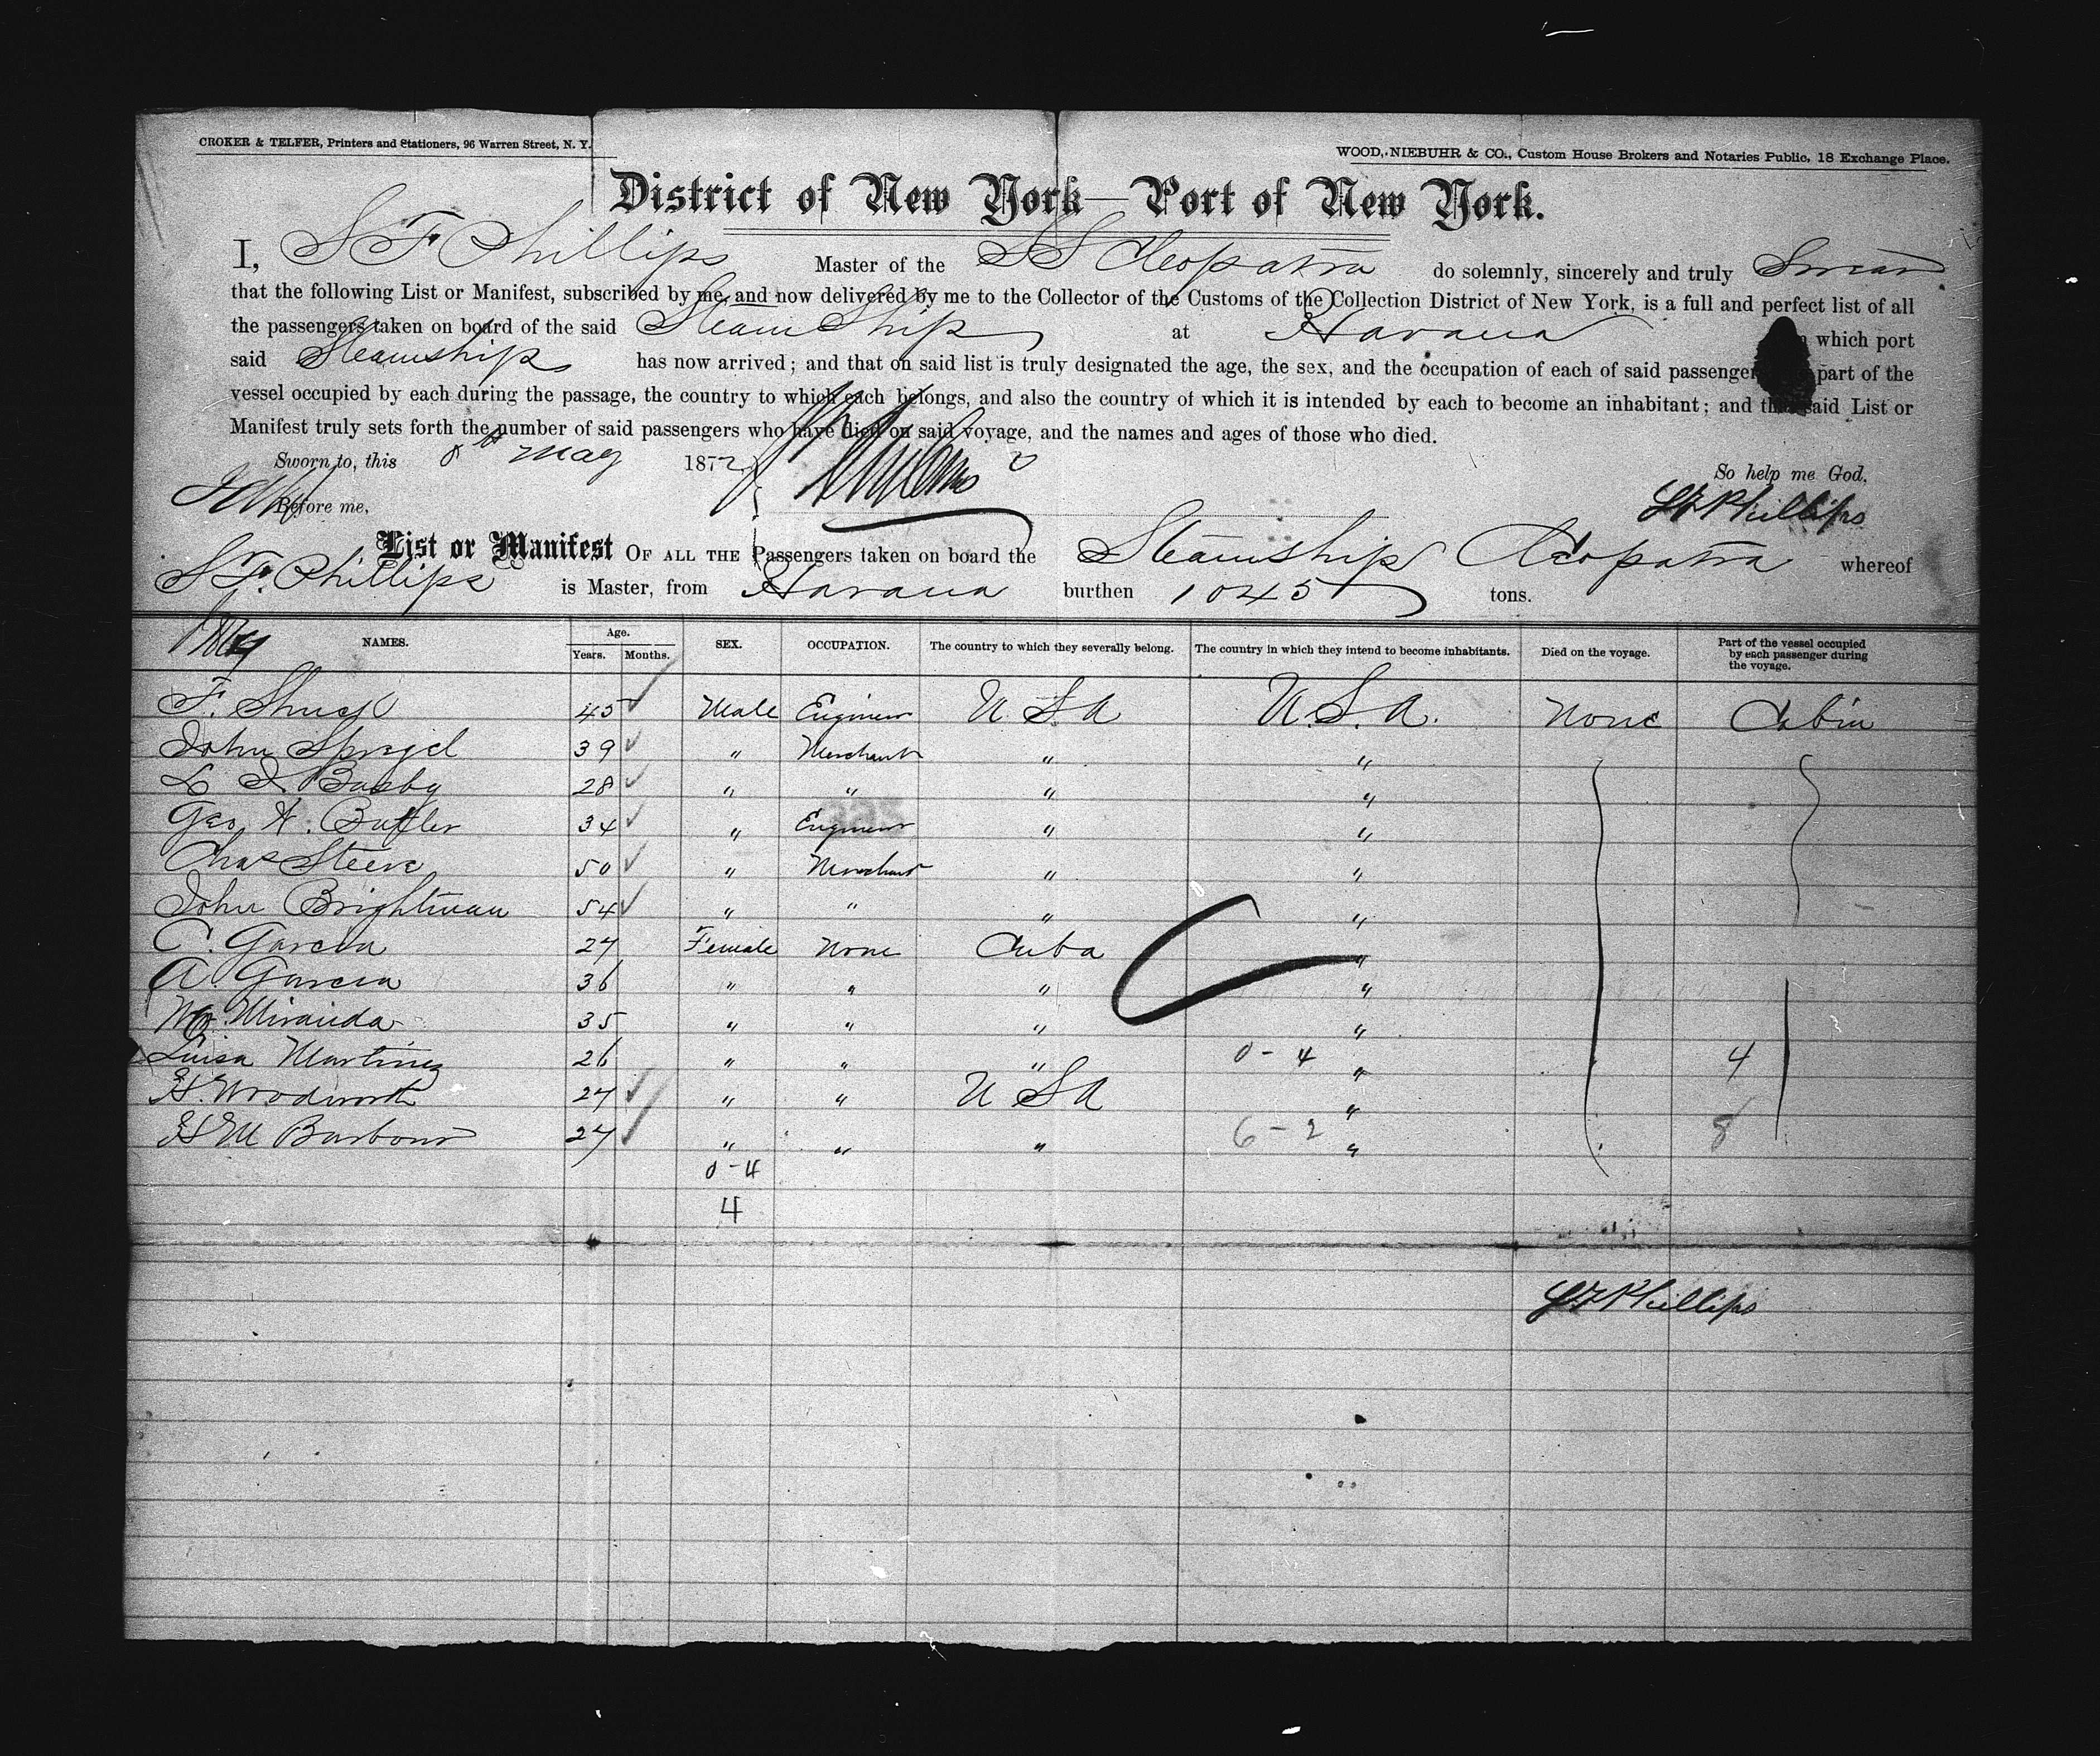 CROKER & TELFER, Printers and Stationers, 96 Warren Street, N. Y.
WOOD, NIEBUHR & CO., Custom House Brokers and Notaries Public, 18 Exchange Place.
District of New York—Port of New York.
I, S F Phillips Master of the SS Cleopatra do solemnly, sincerely and truly Swear
that the following List or Manifest, subscribed by me, and now delivered by me to the Collector of the Customs of the Collection District of New York, is a full and perfect list of all
the passengers taken on board of the said Steam Ship at Havana which port
said Steamship has now arrived; and that on said list is truly designated the age, the sex, and the occupation of each of said passenger part of the
vessel occupied by each during the passage, the country to which each belongs, and also the country of which it is intended by each to become an inhabitant; and said List or
Manifest truly sets forth the number of said passengers who have died on said voyage, and the names and ages of those who died.
Sworn to, this 8th May 1872,
So help me God,
Before me,
S F Phillips
List or Manifest OF ALL THE Passengers taken on board the Steamship Cleopatra whereof
S F. Phillips is Master, from Havana burthen 1045 tons.
NAMES. Age. Years. Months. SEX. OCCUPATION. The country to which they severally belong. The country in which they intend to become inhabitants. Died on the voyage. Part of the vessel occupied by each passenger during the voyage.
F. 45 Male Engineer U S A U. S. A. None Cabin
John 39 " Merchant " "
Busby 28 " " " "
Geo. Butler 34 " Engineer " "
Chas Steere 50 " Merchant " "
John Brightman 54 " " " "
C. Garcia 27 Female None Cuba "
A. Garcia 36 " " " "
Miranda 35 " " " "
Luisa Martinez 26 " " " 0-4 " 4
H. Woodworth 27 " " U S A "
H M Barbour 27 " " " 6-2 " 8
0-4
4
S F Phillips